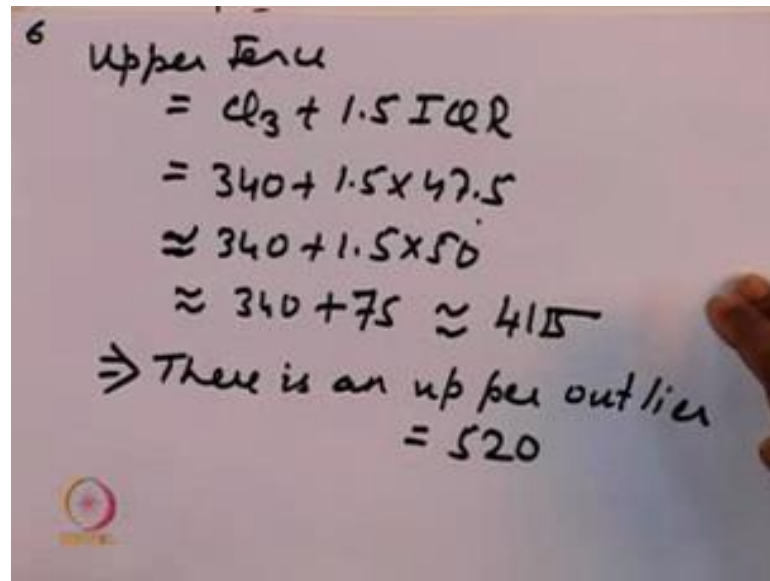 6
Upper Fence
= Q3 + 1.5 IQR
= 340 + 1.5 × 47.5
≈ 340 + 1.5 × 50
≈ 340 + 75 ≈ 415
⇒ There is an upper outlier
= 520